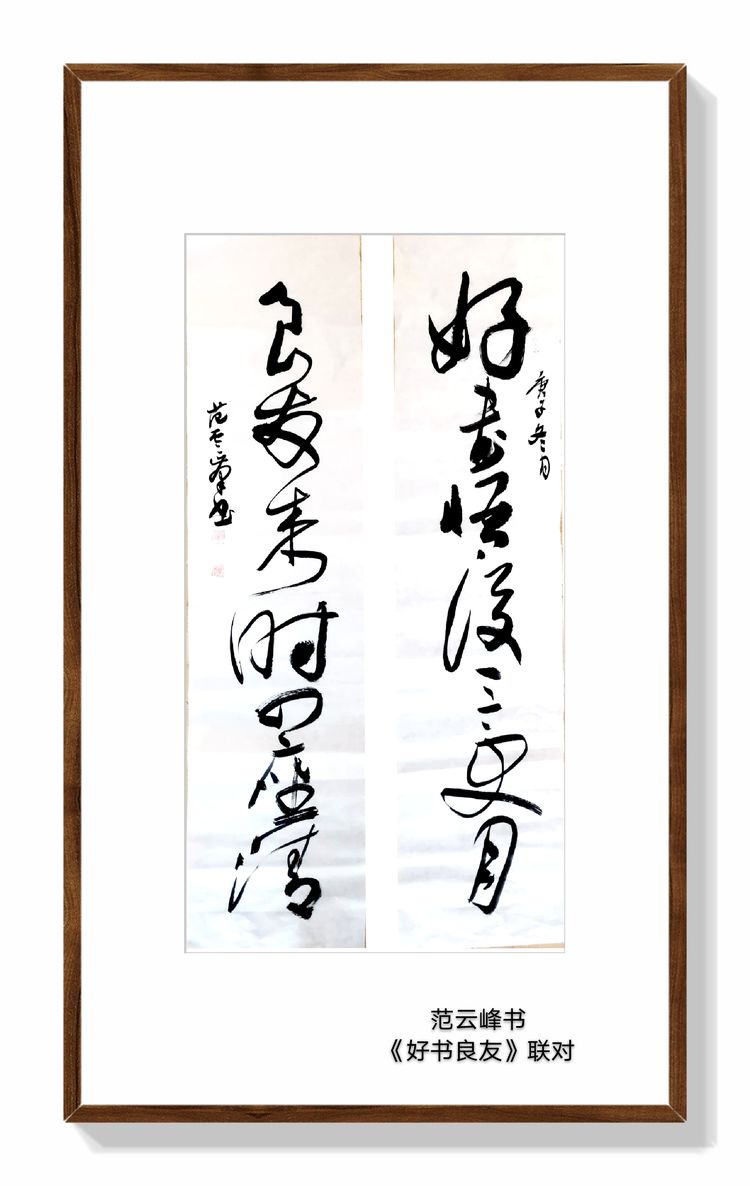 庚子冬月
好書悟後三更月
良友来时四座清
范云峯书
范云峰书
《好书良友》联对